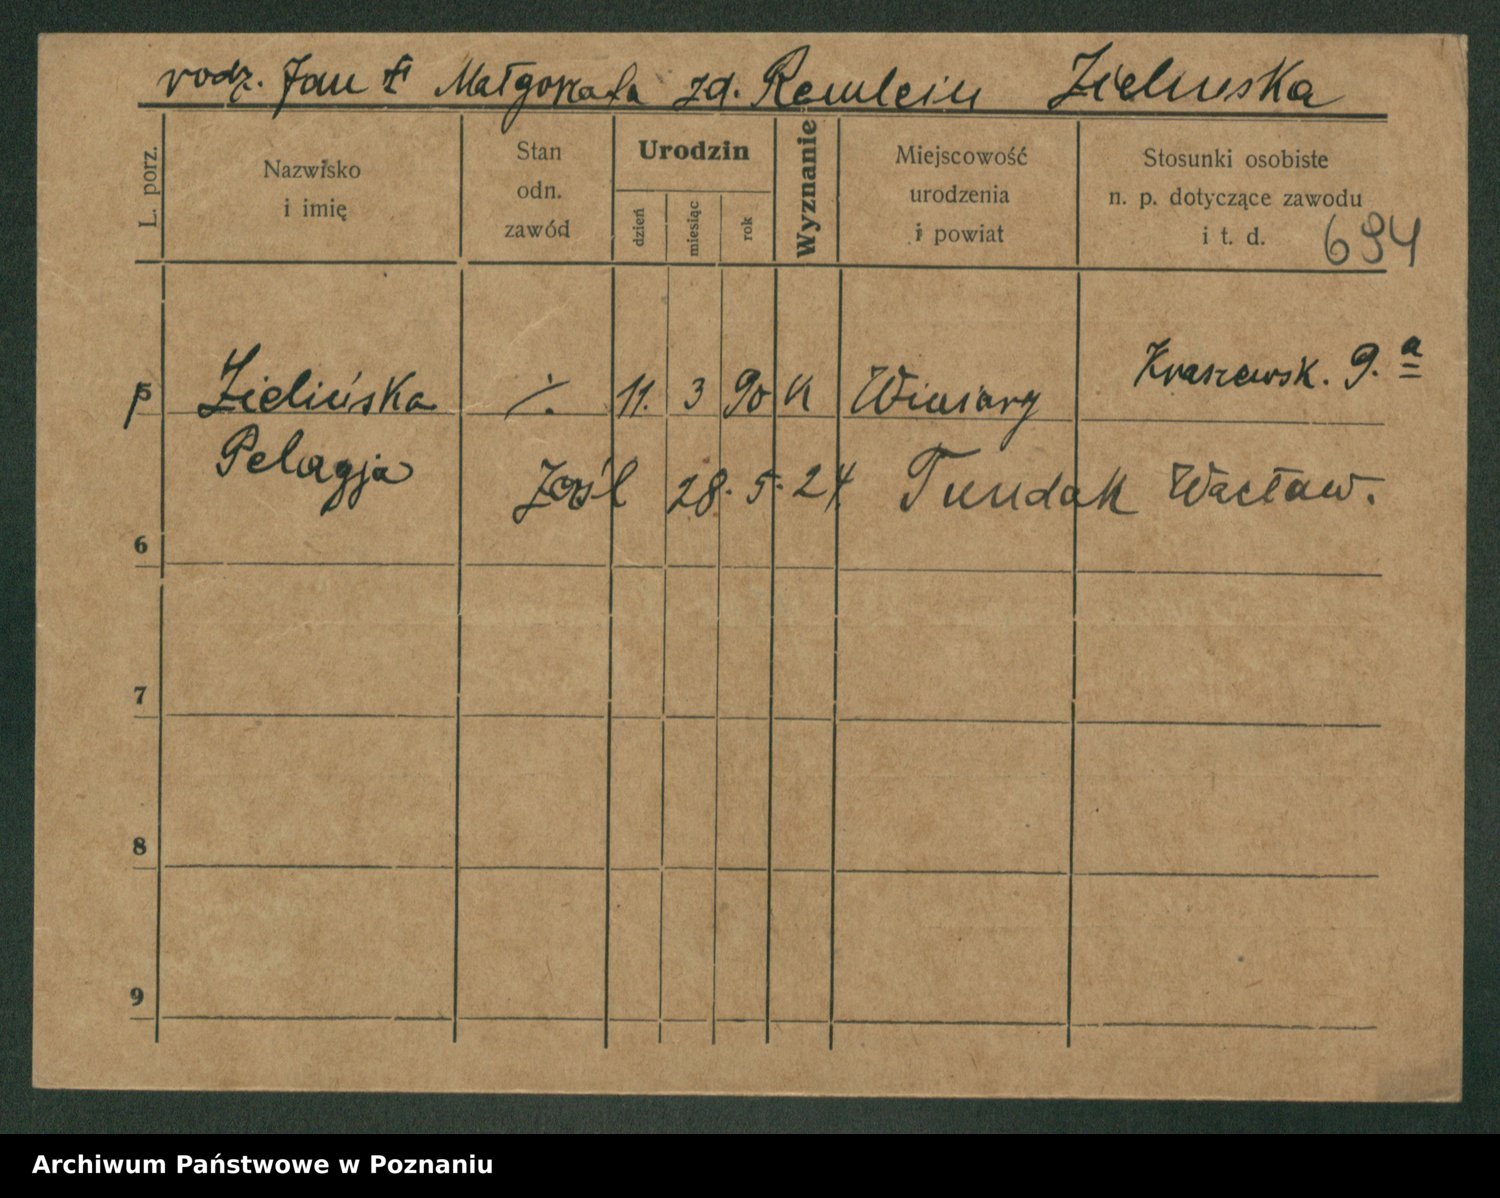 rodz. Jan i Małgorzata zd. Remlein Zielinska
L. porz.
Nazwisko
i imię
Stan
odn.
zawód
Urodzin
dzień
miesiąc
rok
Wyznanie
Miejscowość
urodzenia
i powiat
Stosunki osobiste
n. p. dotyczące zawodu
i t. d.
694
5 Zielińska ./. 11. 3 90 k Winiary Kraszewsk. 9.a
Pelagja 28. 5. 24 Tundak Wacław.
6
7
8
9
Archiwum Państwowe w Poznaniu